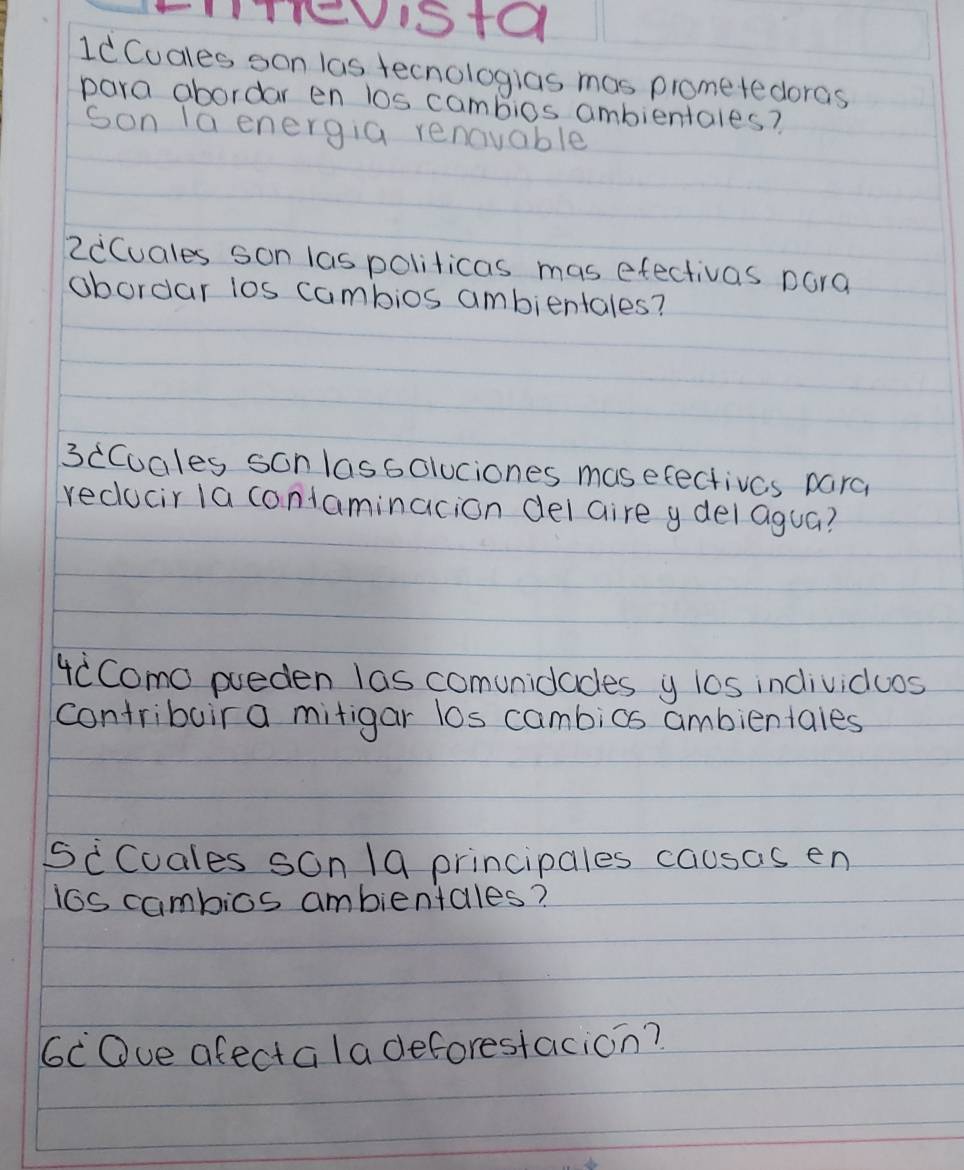 Entrevista
1¿Cuales son las tecnologias mas prometedoras
para abordar en los cambios ambientales?
Son la energia renovable
2¿Cuales son las politicas mas efectivas para
abordar los cambios ambientales?
3¿Cuales son las soluciones mas efectivas para
reducir la contaminacion del aire y del agua?
4¿Como pueden las comunidades y los individuos
contribuir a mitigar los cambios ambientales
5¿Cuales son la principales causas en
los cambios ambientales?
6¿Que afecta la deforestación?